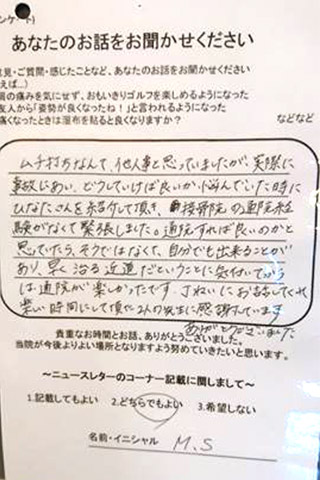 ンケート)
あなたのお話をお聞かせください
意見・ご質問・感じたことなど、あなたのお話をお聞かせください
えば…)
肩の痛みを気にせず、おもいきりゴルフを楽しめるようになった
友人から「姿勢が良くなったね!」と言われるようになった
痛くなったときは湿布を貼ると良くなりますか?
などなど
ムチ打ちなんて、他人事と思っていましたが、実際に
事故にあい、どうしていけば良いか悩んでいた時に
ひなたさんを紹介して頂き、接骨院の通院経
験がなくて緊張しました。通院すれば良いのかと
思っていたら、そうではなくて、自分でも出来ることが
あり、早く治る近道だということに気付いてから
は通院が楽しかったです。丁ねいにお話してくれ
楽しい時間にして頂いた2人の先生に感謝しています
ありがとうございました
貴重なお時間とお話、ありがとうございました。
当院が今後よりよい場所となりますよう努めていきたいと思います。
~ニュースレターのコーナー記載に関しまして~
1.記載してもよい 2.どちらでもよい 3.希望しない
名前・イニシャル M.S